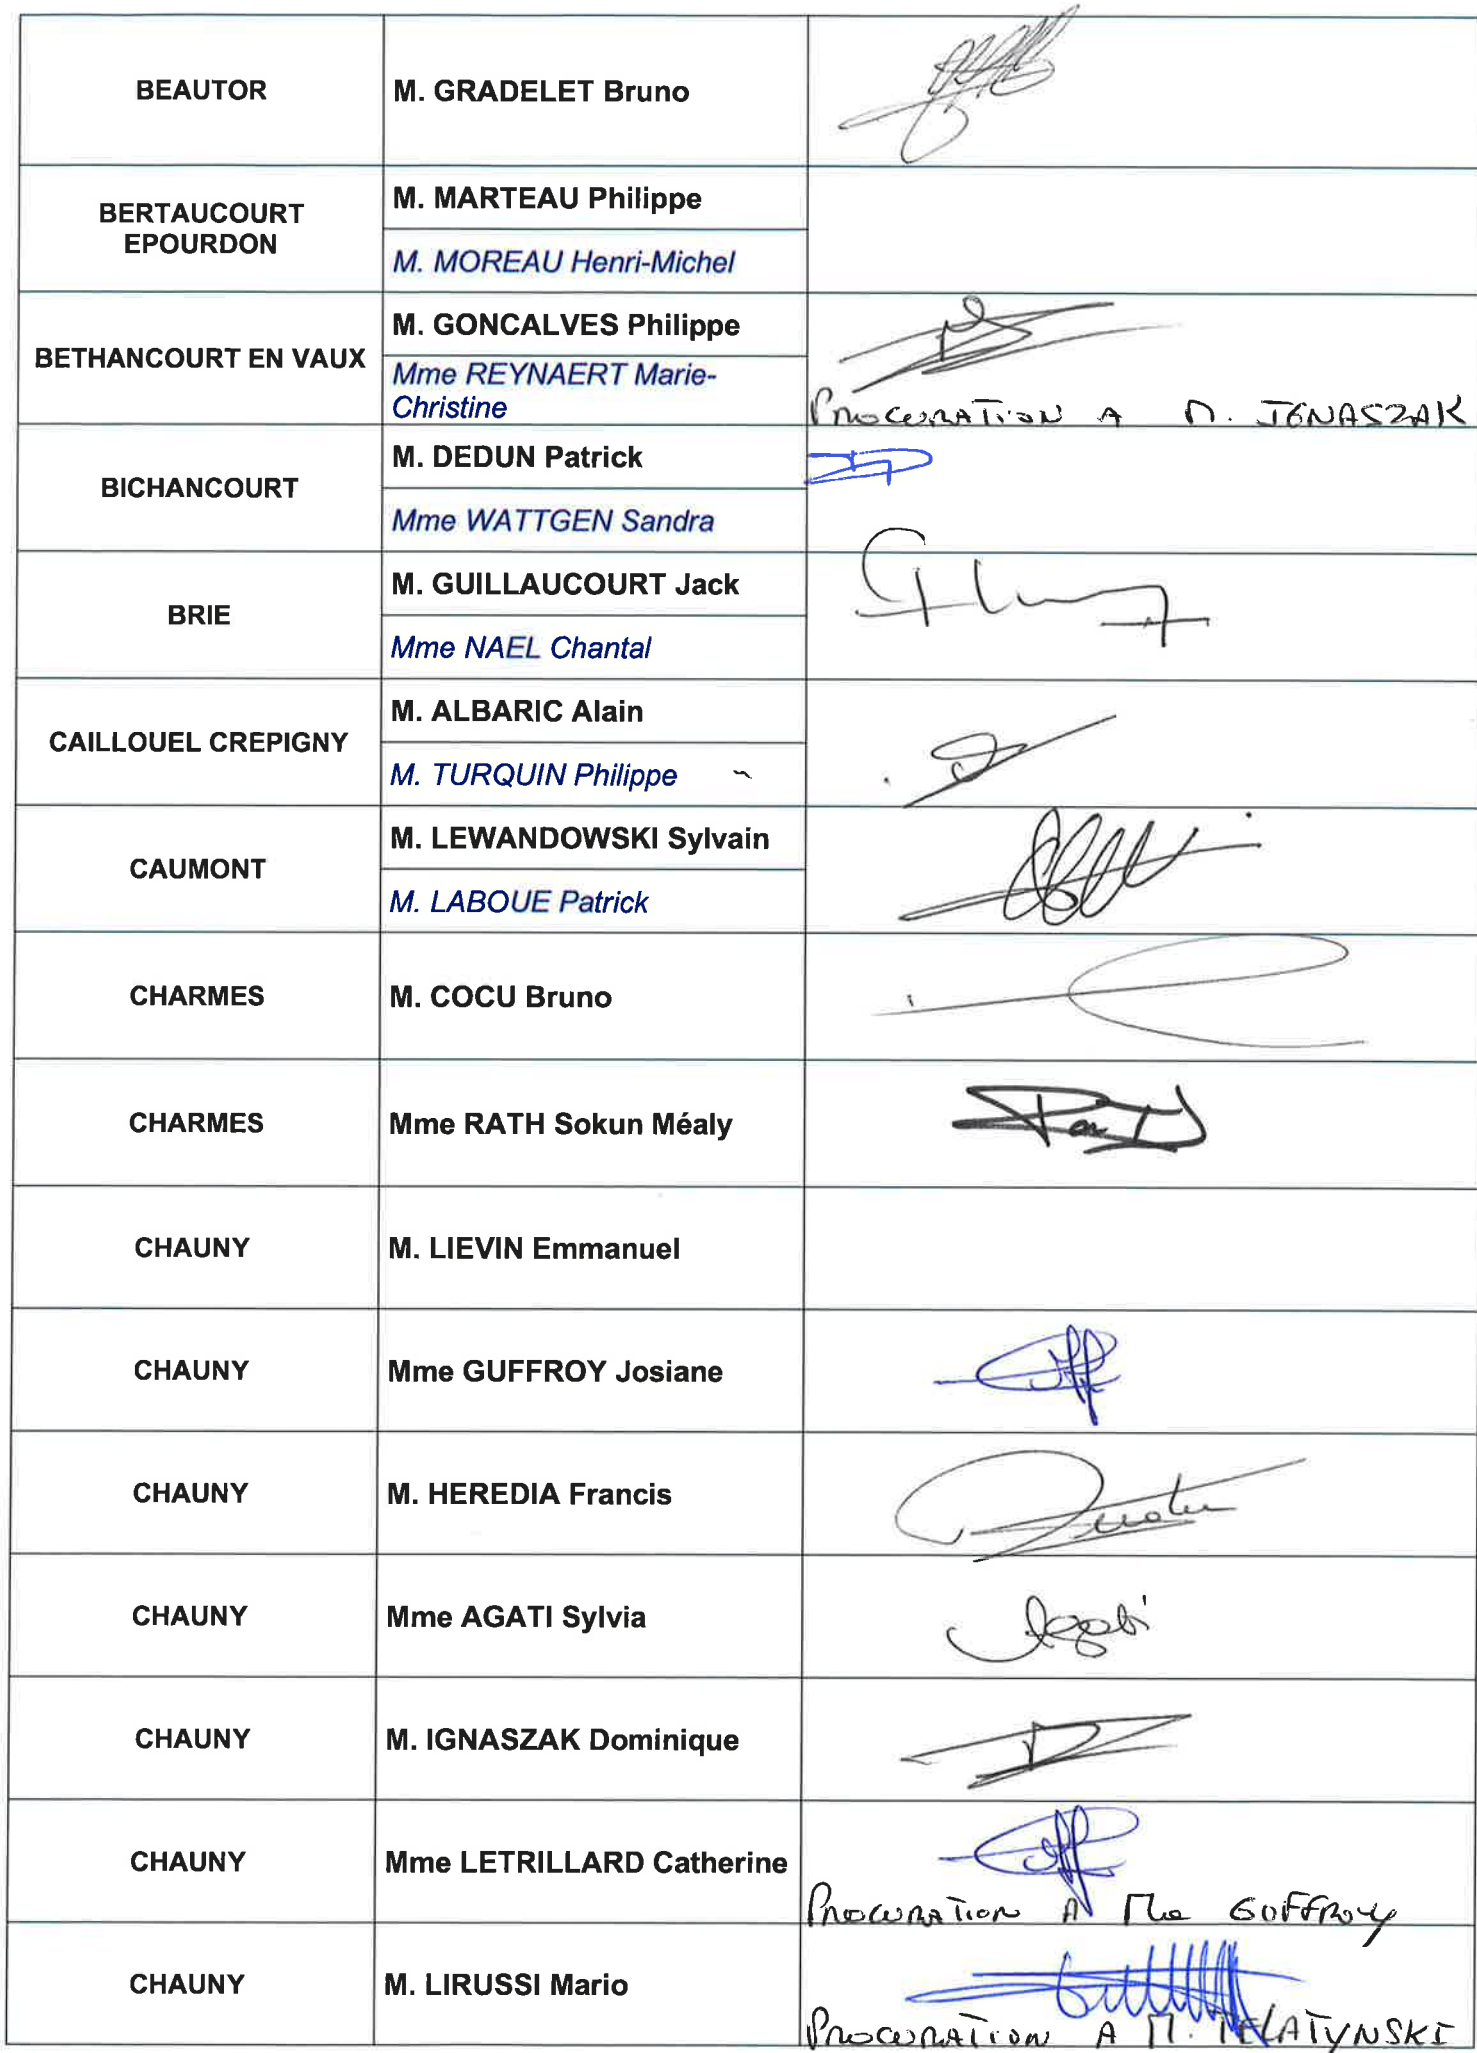 BEAUTOR
M. GRADELET Bruno
BERTAUCOURT
EPOURDON
M. MARTEAU Philippe
M. MOREAU Henri-Michel
BETHANCOURT EN VAUX
M. GONCALVES Philippe
Mme REYNAERT Marie-
Christine
PROCURATION A M. IGNASZAK
BICHANCOURT
M. DEDUN Patrick
Mme WATTGEN Sandra
BRIE
M. GUILLAUCOURT Jack
Mme NAEL Chantal
CAILLOUEL CREPIGNY
M. ALBARIC Alain
M. TURQUIN Philippe
CAUMONT
M. LEWANDOWSKI Sylvain
M. LABOUE Patrick
CHARMES
M. COCU Bruno
CHARMES
Mme RATH Sokun Méaly
CHAUNY
M. LIEVIN Emmanuel
CHAUNY
Mme GUFFROY Josiane
CHAUNY
M. HEREDIA Francis
CHAUNY
Mme AGATI Sylvia
Agati
CHAUNY
M. IGNASZAK Dominique
CHAUNY
Mme LETRILLARD Catherine
PROCURATION A Mme GUFFROY
CHAUNY
M. LIRUSSI Mario
PROCURATION A M. TELATYNSKI